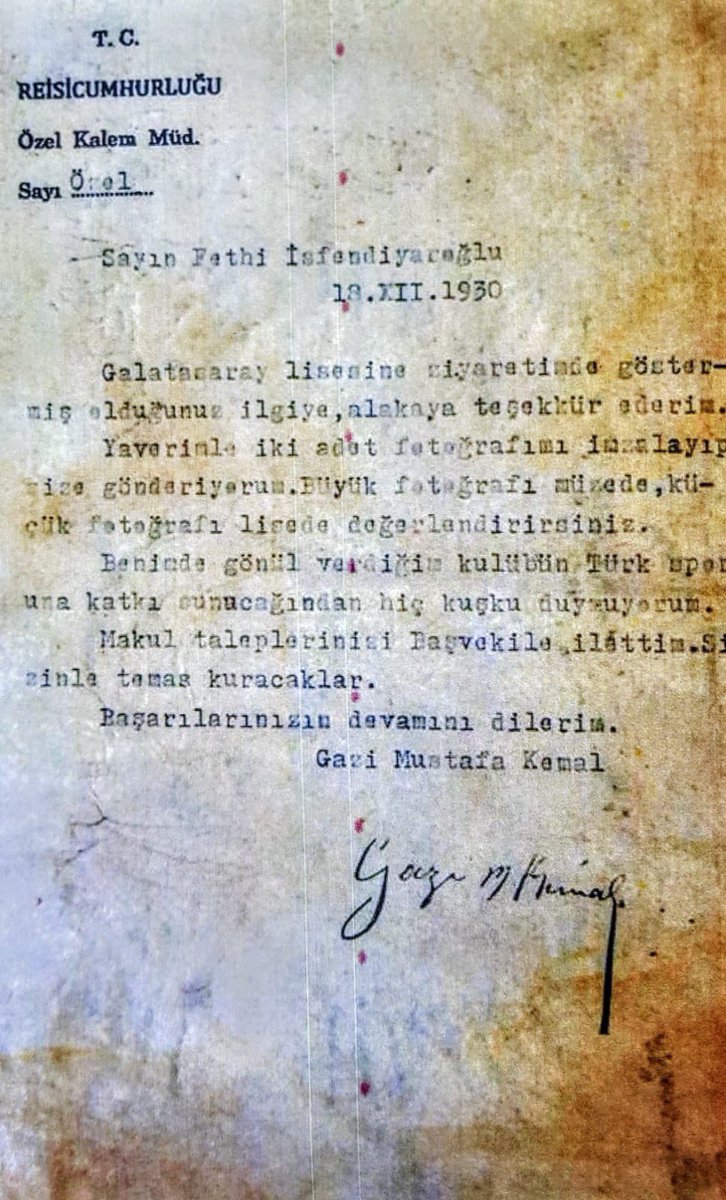 T. C.
REİSİCUMHURLUĞU
Özel Kalem Müd.
Sayı Özel
Sayın Fethi İsfendiyaroğlu
18.XII.1930
Galatasaray lisesine ziyaretimde göster-
miş olduğunuz ilgiye,alakaya teşekkür ederim.
Yaverimle iki adet fotoğrafımı imzalayıp
size gönderiyorum.Büyük fotoğrafı müzede,kü-
çük fotoğrafı lisede değerlendirirsiniz.
Benimde gönül verdiğim kulübün Türk spor
una katkı sunucağından hiç kuşku duymuyorum.
Makul taleplerinizi Başvekile ilettim.Si
zinle temas kuracaklar.
Başarılarınızın devamını dilerim.
Gazi Mustafa Kemal
Gazi M Kemal